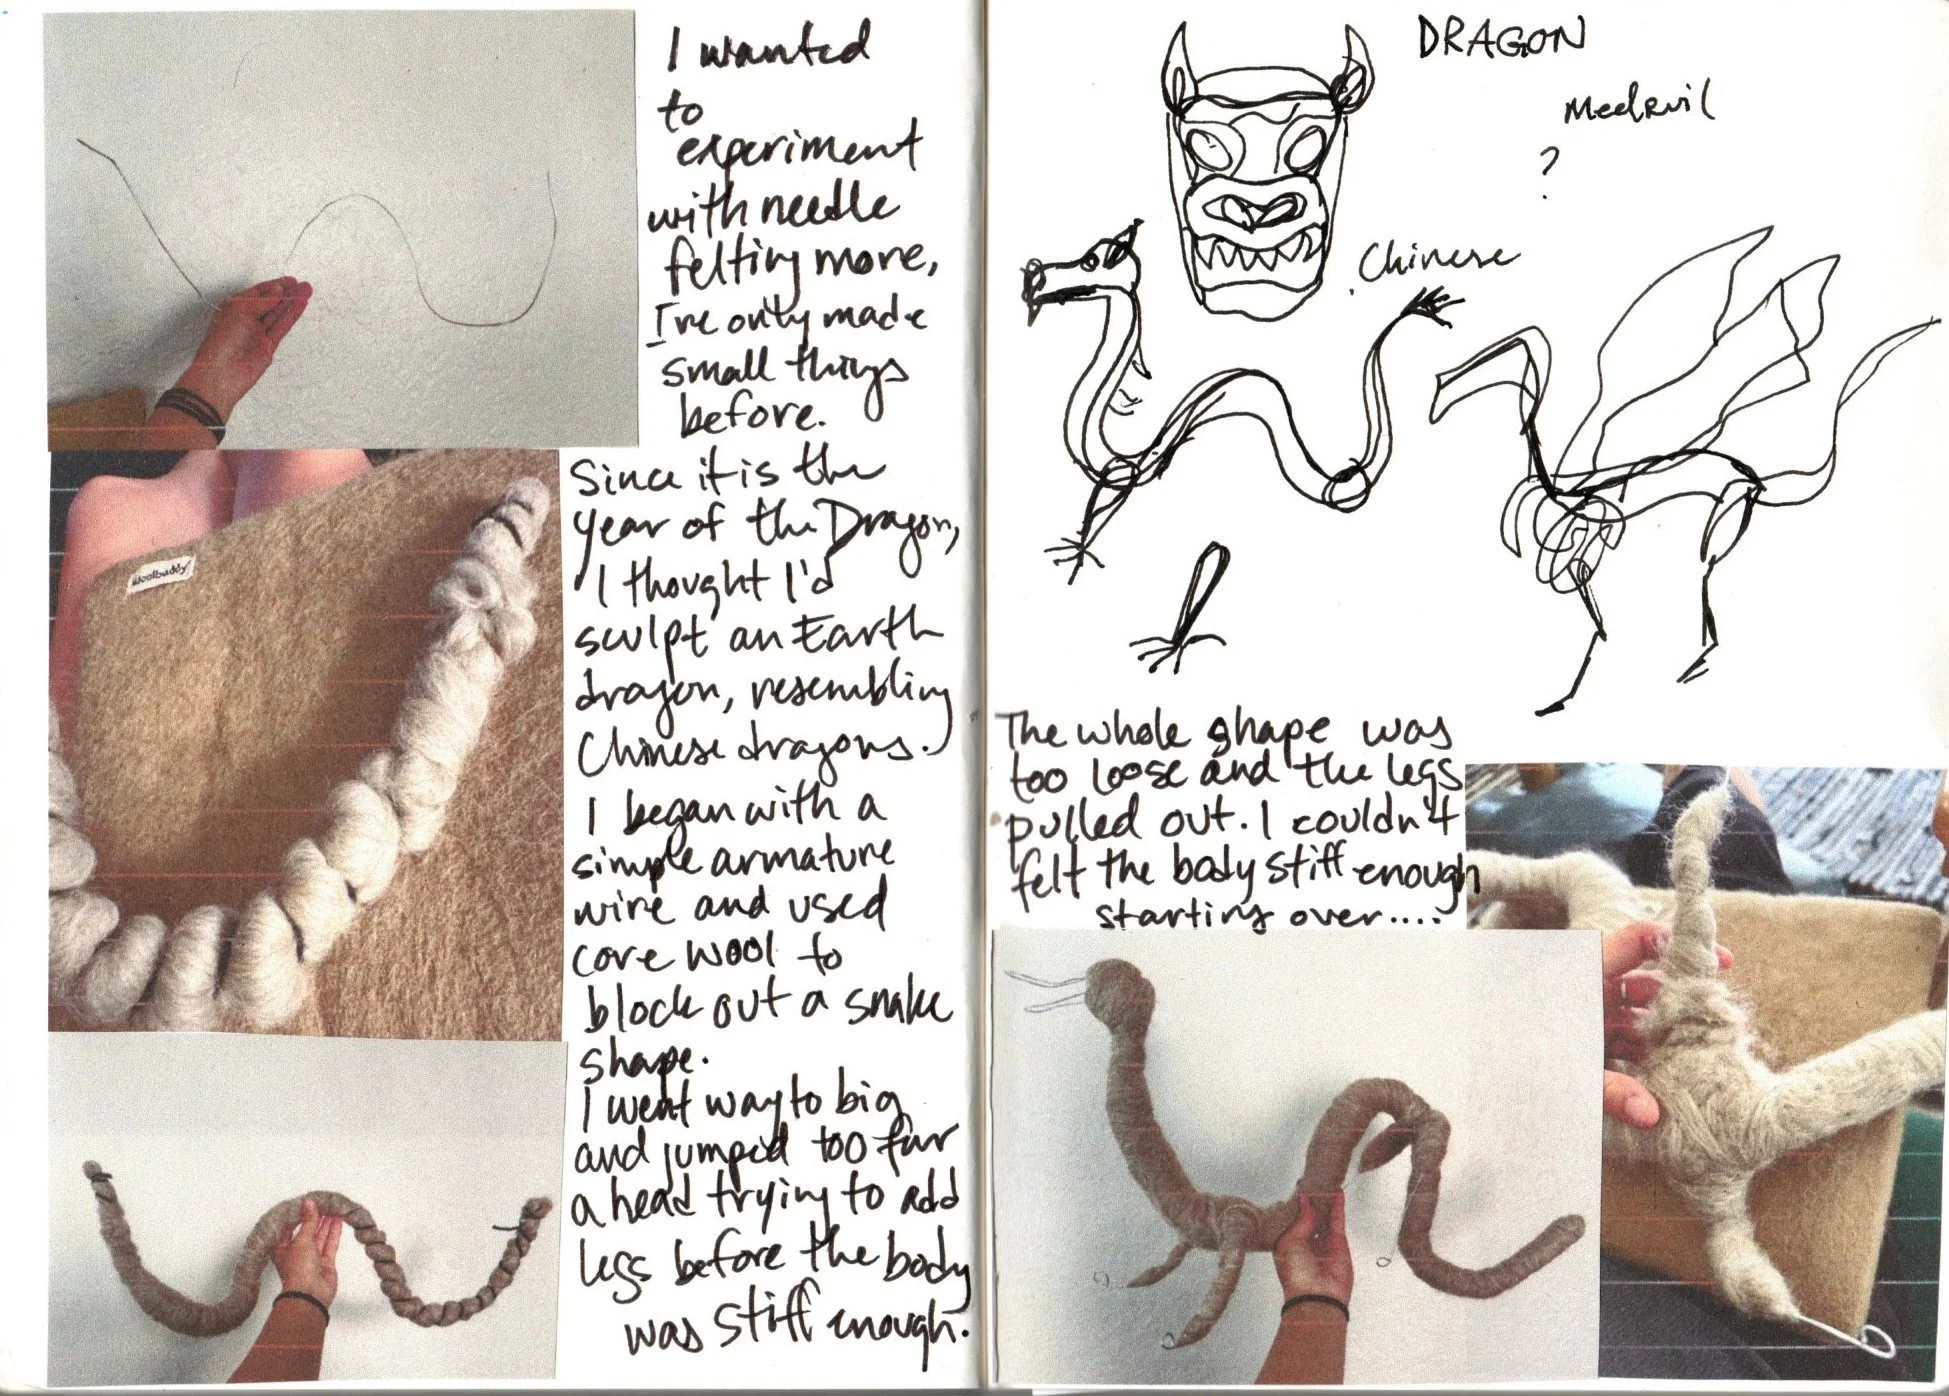 I wanted
to
experiment
with needle
felting more,
I've only made
small things
before.
Since it is the
year of the Dragon,
I thought I'd
sculpt an Earth
dragon, resembling
Chinese dragons.
I began with a
simple armature
wire and used
core wool to
block out a snake
shape.
I went way to big
and jumped too far
a head trying to add
legs before the body
was stiff enough.
woolbuddy
DRAGON
Medevil
?
Chinese
The whole shape was
too loose and the legs
pulled out. I couldn't
felt the body stiff enough
starting over....